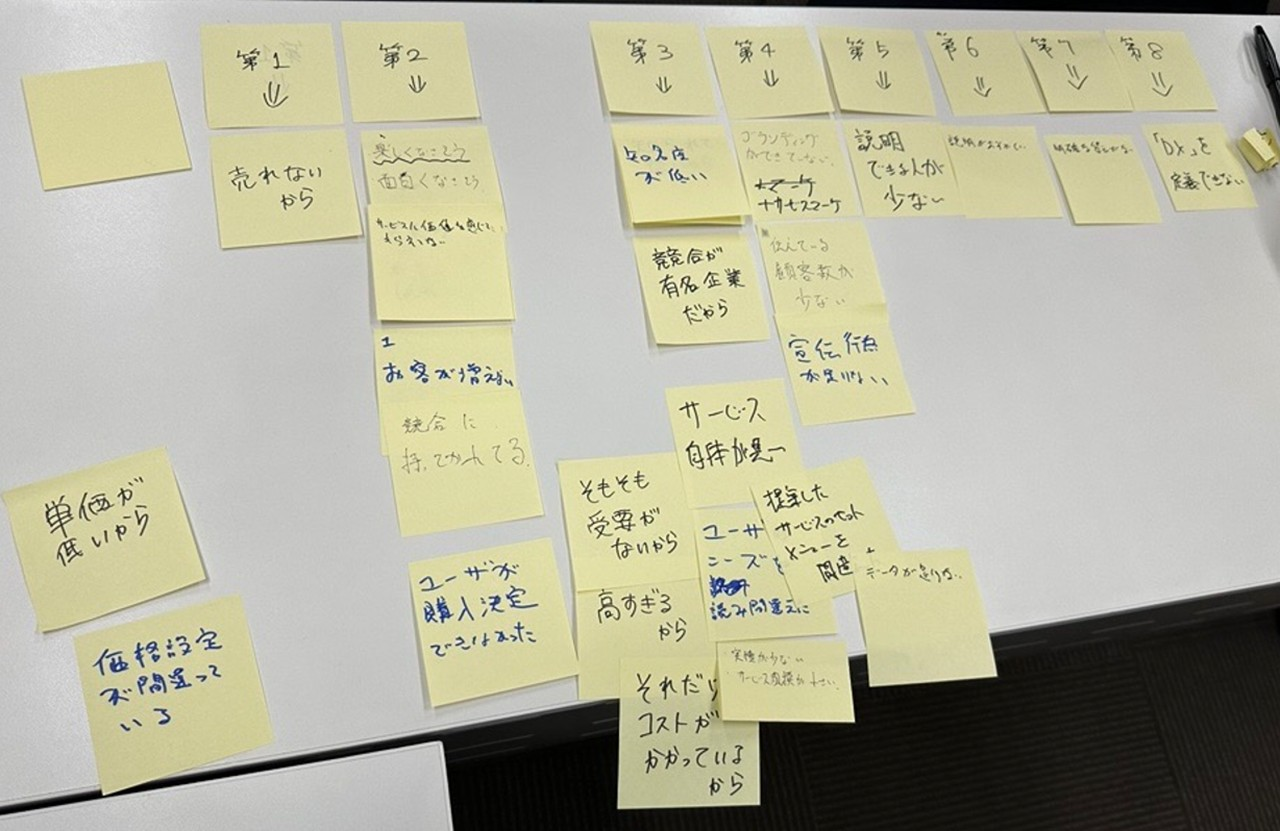 第1
⇓
第2
⇓
第3
⇓
第4
⇓
第5
⇓
第6
⇓
第7
⇓
第8
⇓
売れない
から
単価が
低いから
価格設定
が間違って
いる
楽しくなさそう
面白くなさそう
サービスに価値を感じて
もらえない
1
お客が増えない
競合に
持ってかれてる
ユーザが
購入決定
できなかった
知名度
が低い
競合が
有名企業
だから
サービス
自体が悪い
そもそも
受要が
ないから
高すぎる
から
それだけ
コストが
かかっている
から
ユーザ
ニーズを
読み間違えた
ブランディング
ができていない
伝えている
顧客数が
少ない
宣伝行為
が足りない
提案した
サービスのセット
メニューを
間違
実績が少ない
サービス規模が小さい
説明
できる人が
少ない
データが足りない
説明が
明確な
「DX」を
定義できない